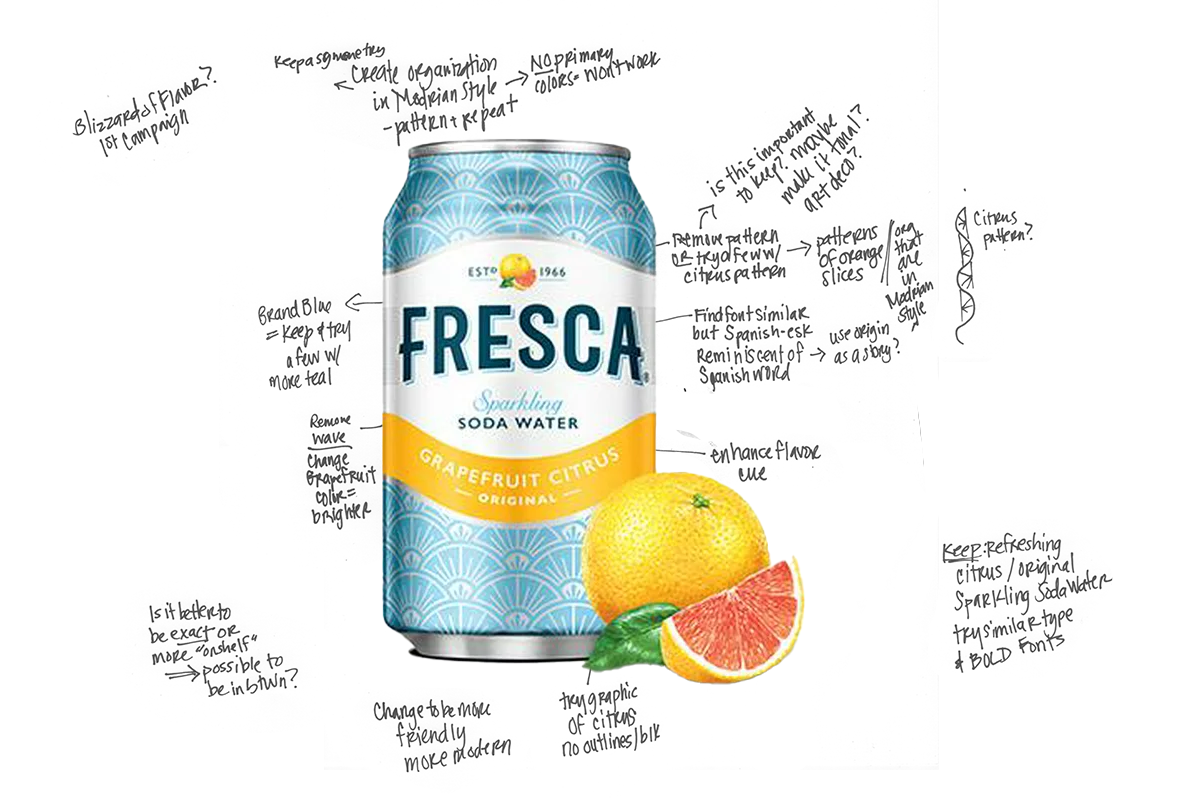 Keep asymmetry
Create organization
in Modrian Style
-pattern + repeat
NO primary
colors = won't work
Blizzard of Flavor?
1st Campaign
is this important
to keep? maybe
make it tonal?
art deco?
Remove pattern
OR try a few w/
citrus pattern
patterns
of orange
slices
org
that
are
in
Modrian
Style
Citrus
pattern?
ESTD 1966
FRESCA®
Sparkling
SODA WATER
GRAPEFRUIT CITRUS
ORIGINAL
Brand Blue
= Keep & try
a few w/
more teal
Find font similar
but Spanish-esk
Reminiscent of
Spanish word
use origin
as a story?
Remove
wave
Change
Grapefruit
color =
brighter
enhance flavor
cue
Keep: Refreshing
citrus / original
Sparkling Soda Water
try similar type
& BOLD Fonts
Is it better to
be exact or
more "onshelf"
possible to
be in btwn?
Change to be more
friendly
more modern
try graphic
of citrus
no outlines/blk